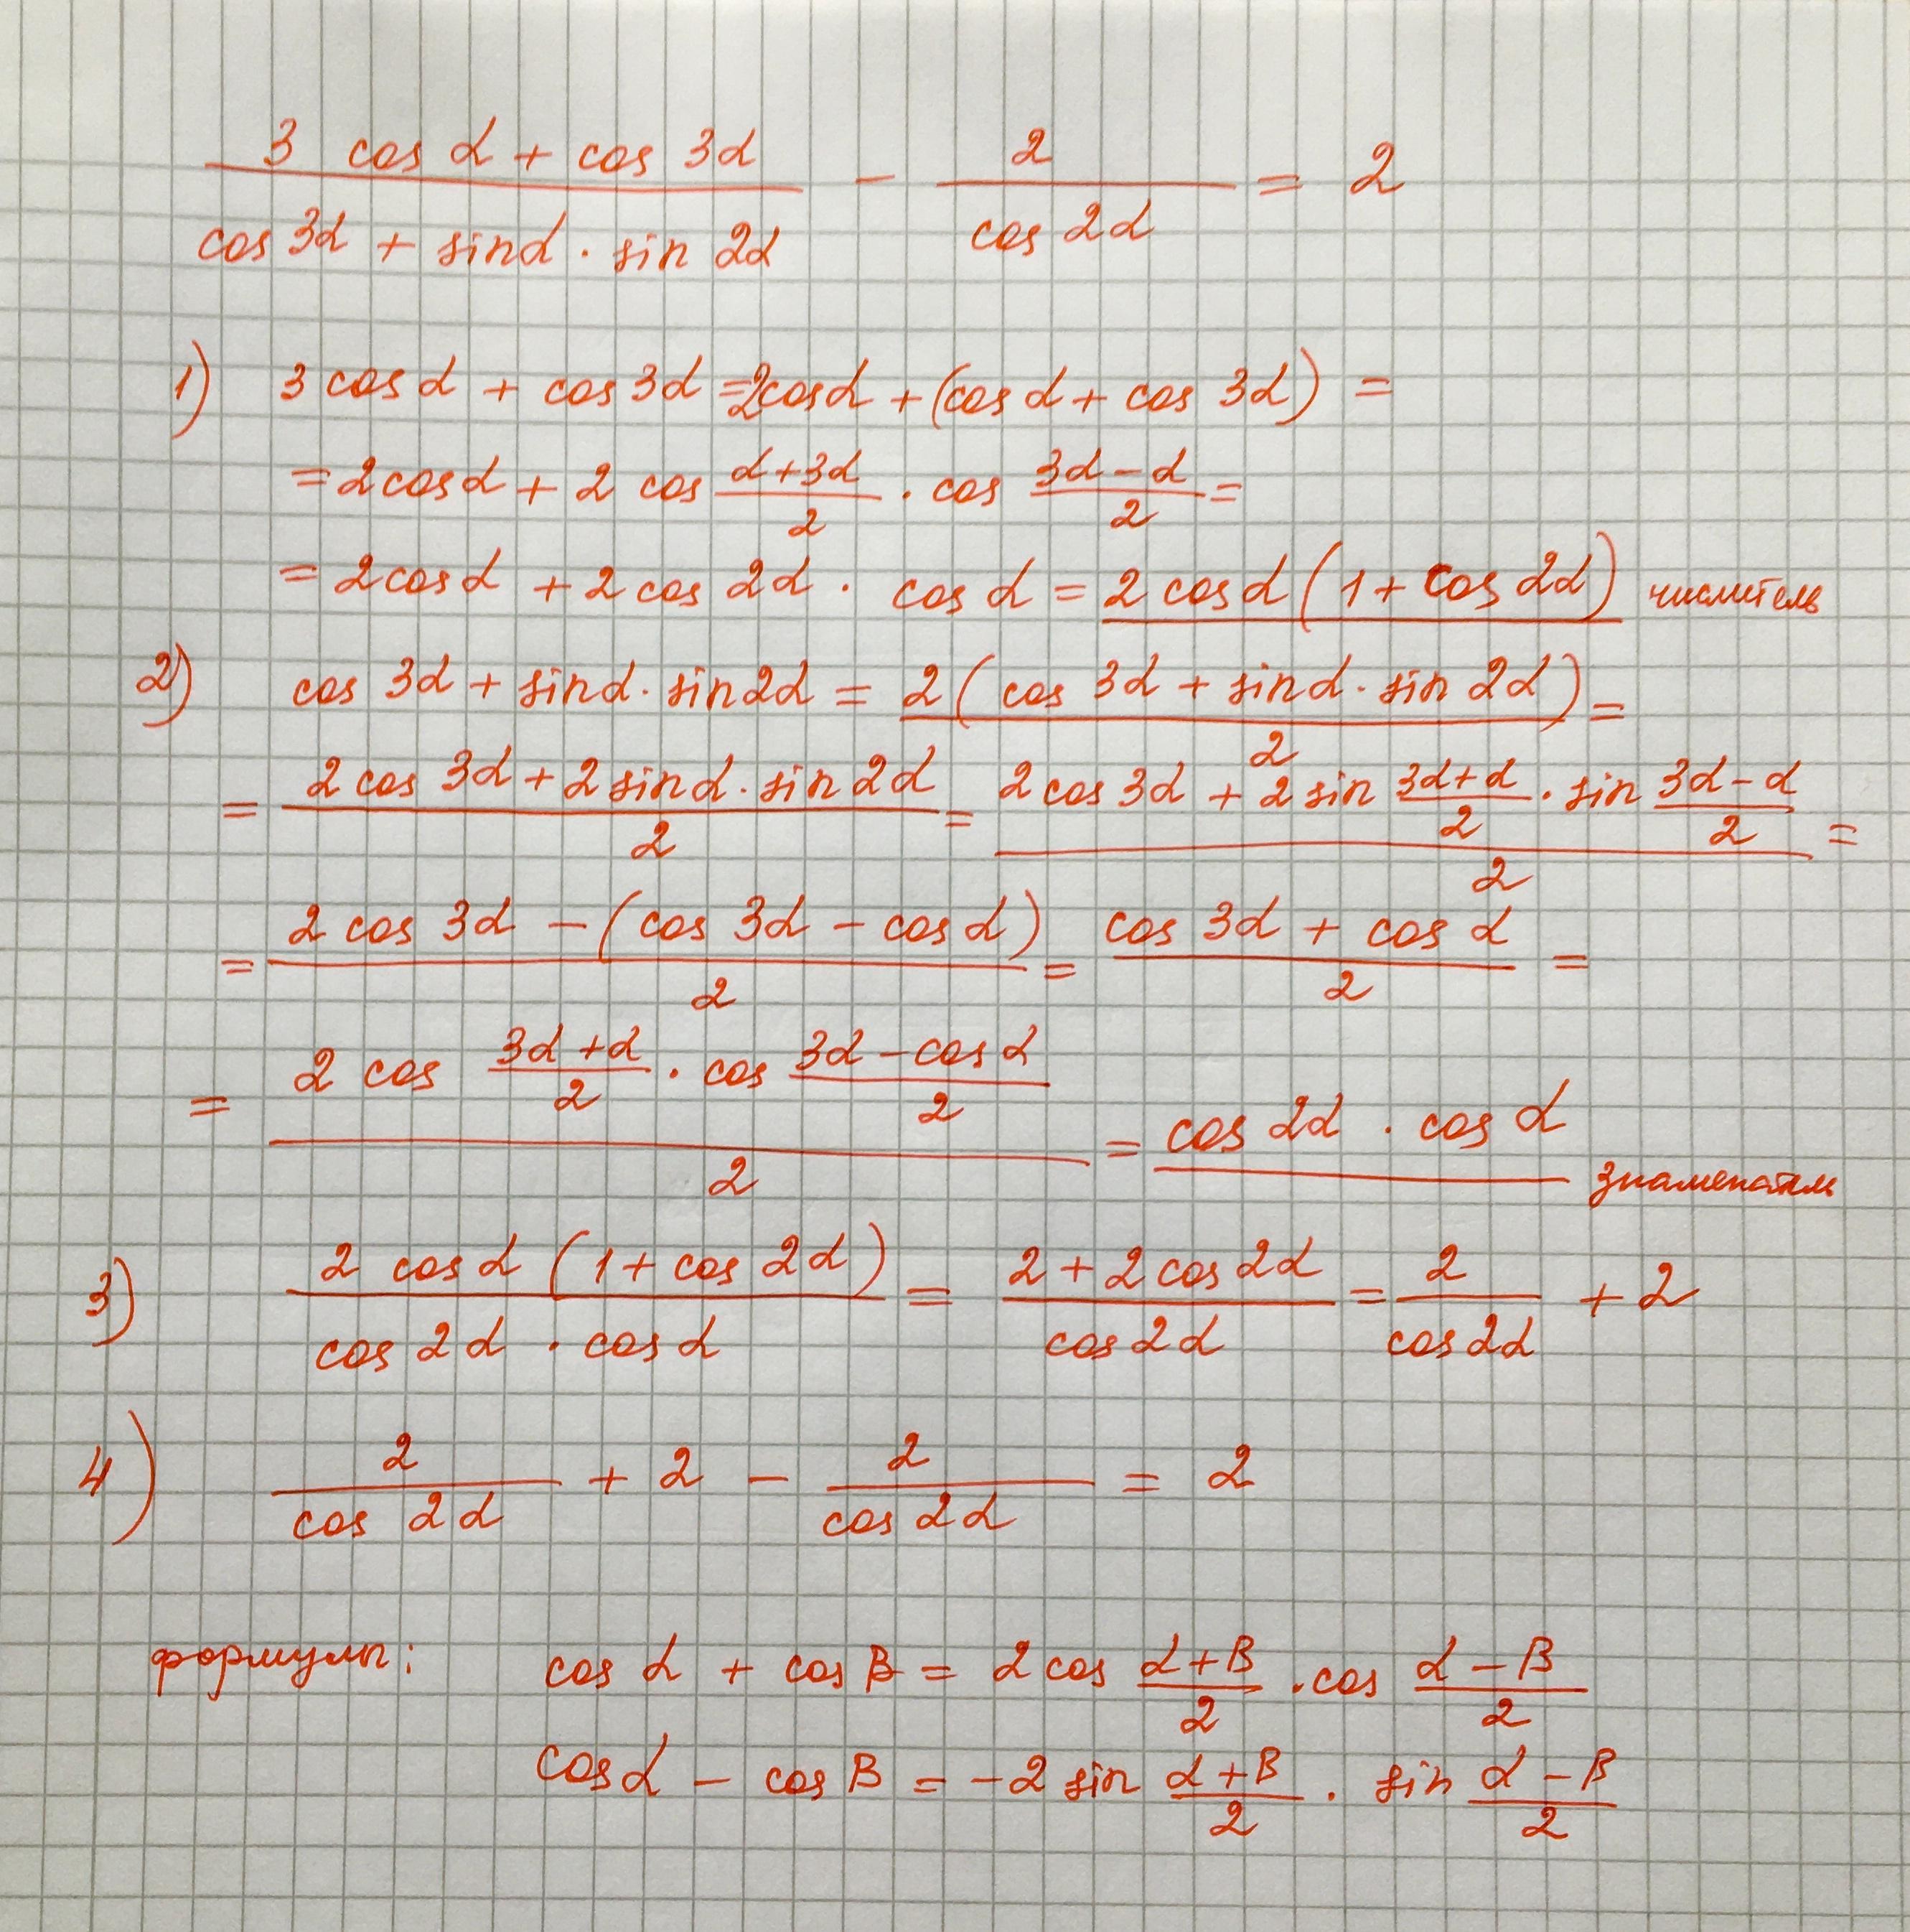 (3 cos α + cos 3α)/(cos 3α + sin α · sin 2α) − 2/(cos 2α) = 2
1) 3 cos α + cos 3α = 2cos α + (cos α + cos 3α) =
= 2 cos α + 2 cos (α+3α)/2 · cos (3α − α)/2 =
= 2 cos α + 2 cos 2α · cos α = 2 cos α (1 + cos 2α) числитель
2) cos 3α + sin α · sin 2α = 2 (cos 3α + sin α · sin 2α)/2 =
= (2 cos 3α + 2 sin α · sin 2α)/2 = (2 cos 3α + 2 sin (3α+α)/2 · sin (3α − α)/2)/2 =
= (2 cos 3α − (cos 3α − cos α))/2 = (cos 3α + cos α)/2 =
= (2 cos (3α + α)/2 · cos (3α − cos α)/2)/2 = cos 2α · cos α знаменатель
3) (2 cos α (1 + cos 2α))/(cos 2α · cos α) = (2 + 2 cos 2α)/(cos 2α) = 2/(cos 2α) + 2
4) 2/(cos 2α) + 2 − 2/(cos 2α) = 2
формулы: cos α + cos β = 2 cos (α + β)/2 · cos (α − β)/2
cos α − cos β = −2 sin (α + β)/2 · sin (α − β)/2